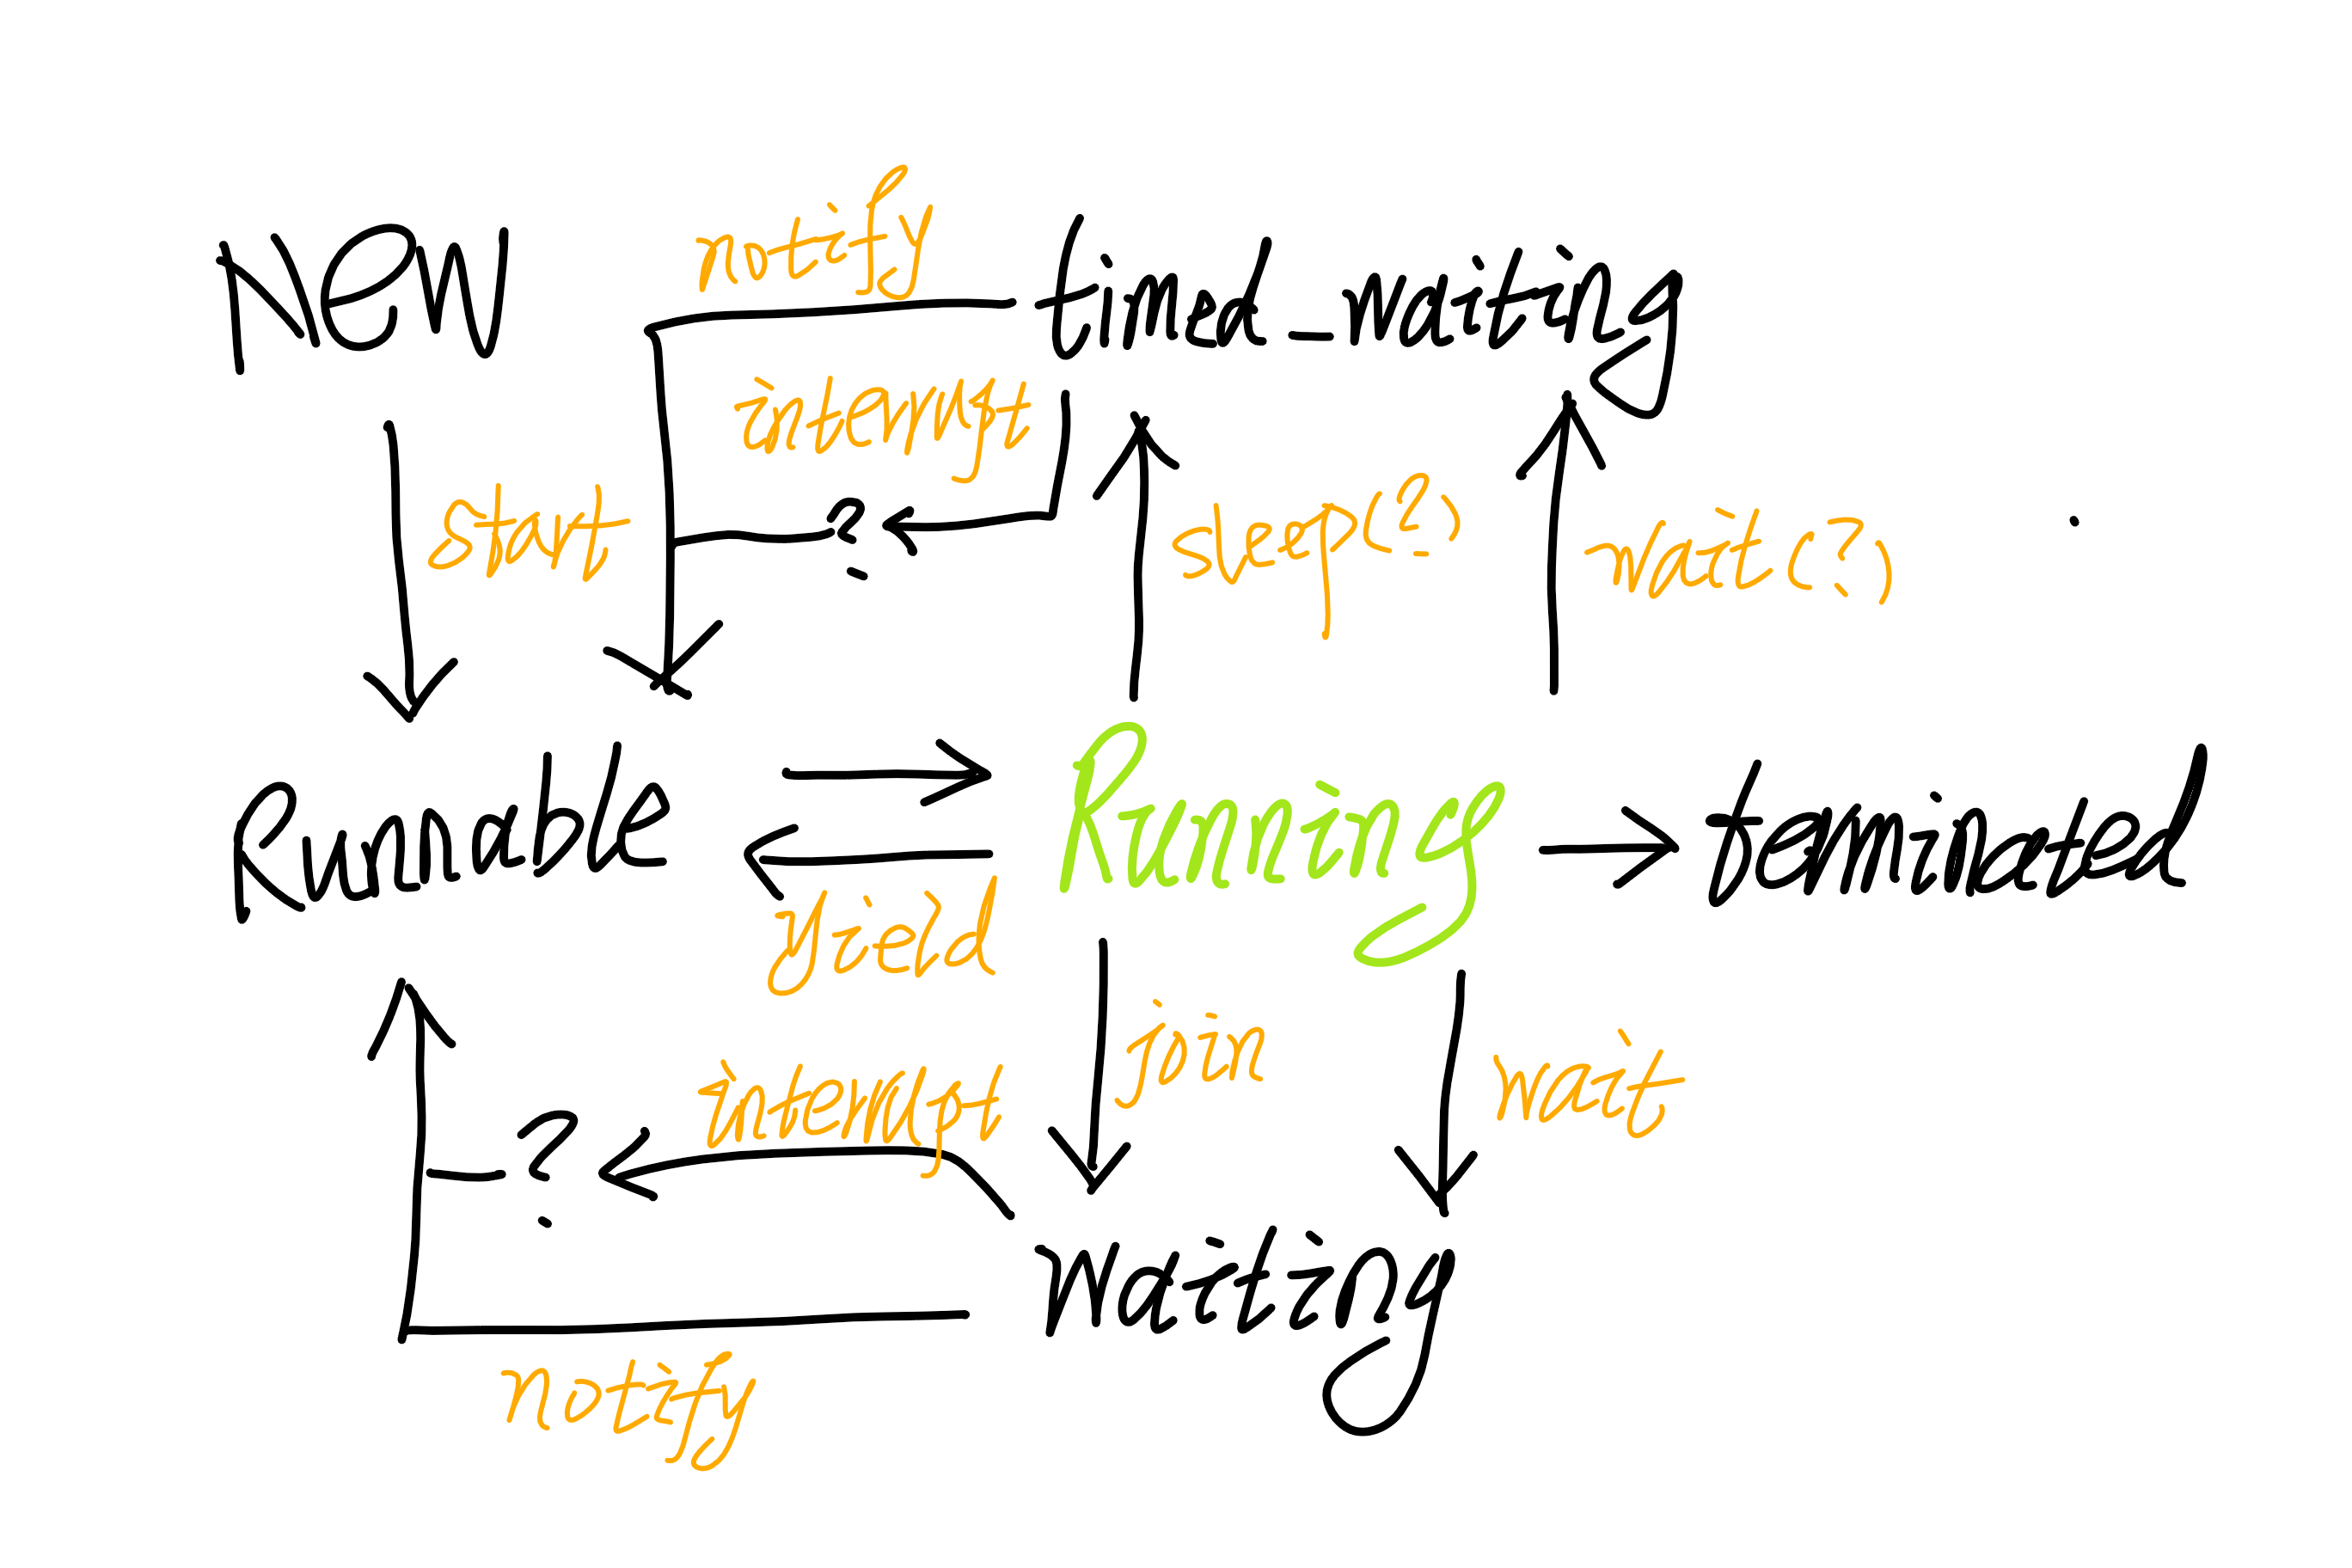 New
notify
timed_waiting
interrupt
?
start
sleep(?)
wait(?)
Runnable
Running
terminated
yield
join
wait
interrupt
?
waiting
notify